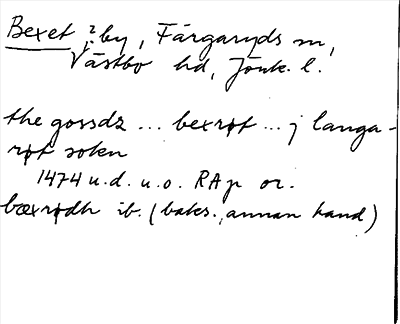 Bexet, ?by, Färgaryds sn,
Västbo hd, Jönk. l.
the gossdz ... bexrøt ... j langa-
røt soken
1474 u.d. u.o. RAp or.
bæxrødh ib. (baks., annan hand)